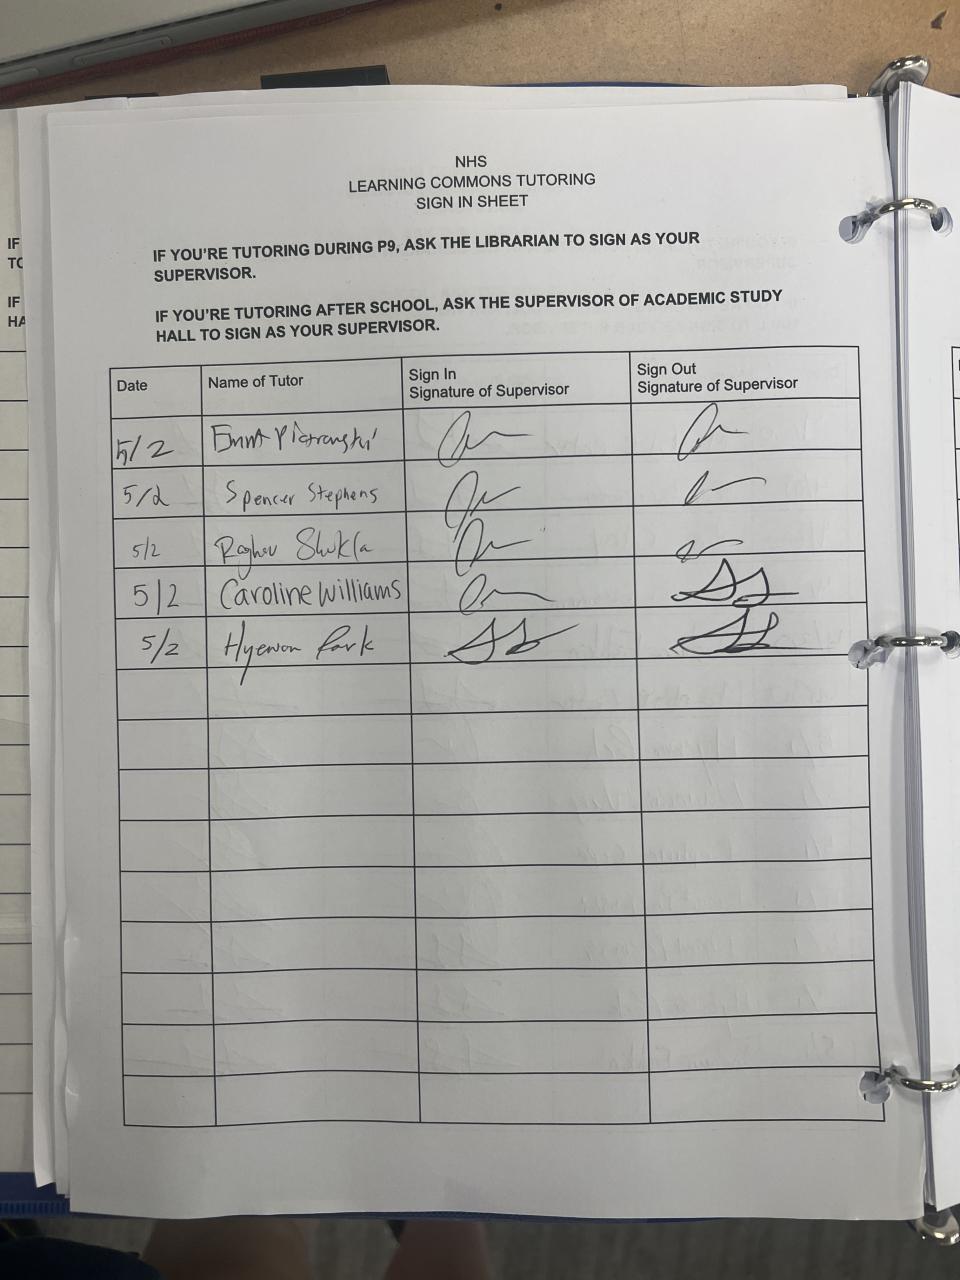 NHS
LEARNING COMMONS TUTORING
SIGN IN SHEET
IF YOU'RE TUTORING DURING P9, ASK THE LIBRARIAN TO SIGN AS YOUR
SUPERVISOR.
IF YOU'RE TUTORING AFTER SCHOOL, ASK THE SUPERVISOR OF ACADEMIC STUDY
HALL TO SIGN AS YOUR SUPERVISOR.
Date Name of Tutor Sign In Sign Out
Signature of Supervisor Signature of Supervisor
5/2
5/2 Spencer Stephens
5/2 Raghav Shukla
5/2 Caroline Williams
5/2 Hyewon Park
IF
IF